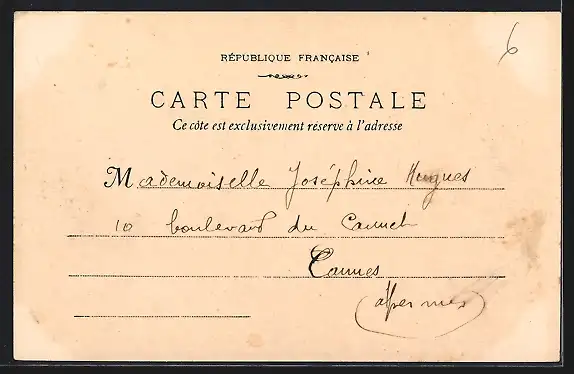 6
RÉPUBLIQUE FRANÇAISE
CARTE POSTALE
Ce côté est exclusivement réservé à l'adresse
Mademoiselle Joséphine Hugues
10 boulevard du Cannet
Cannes
(alpes mmes)